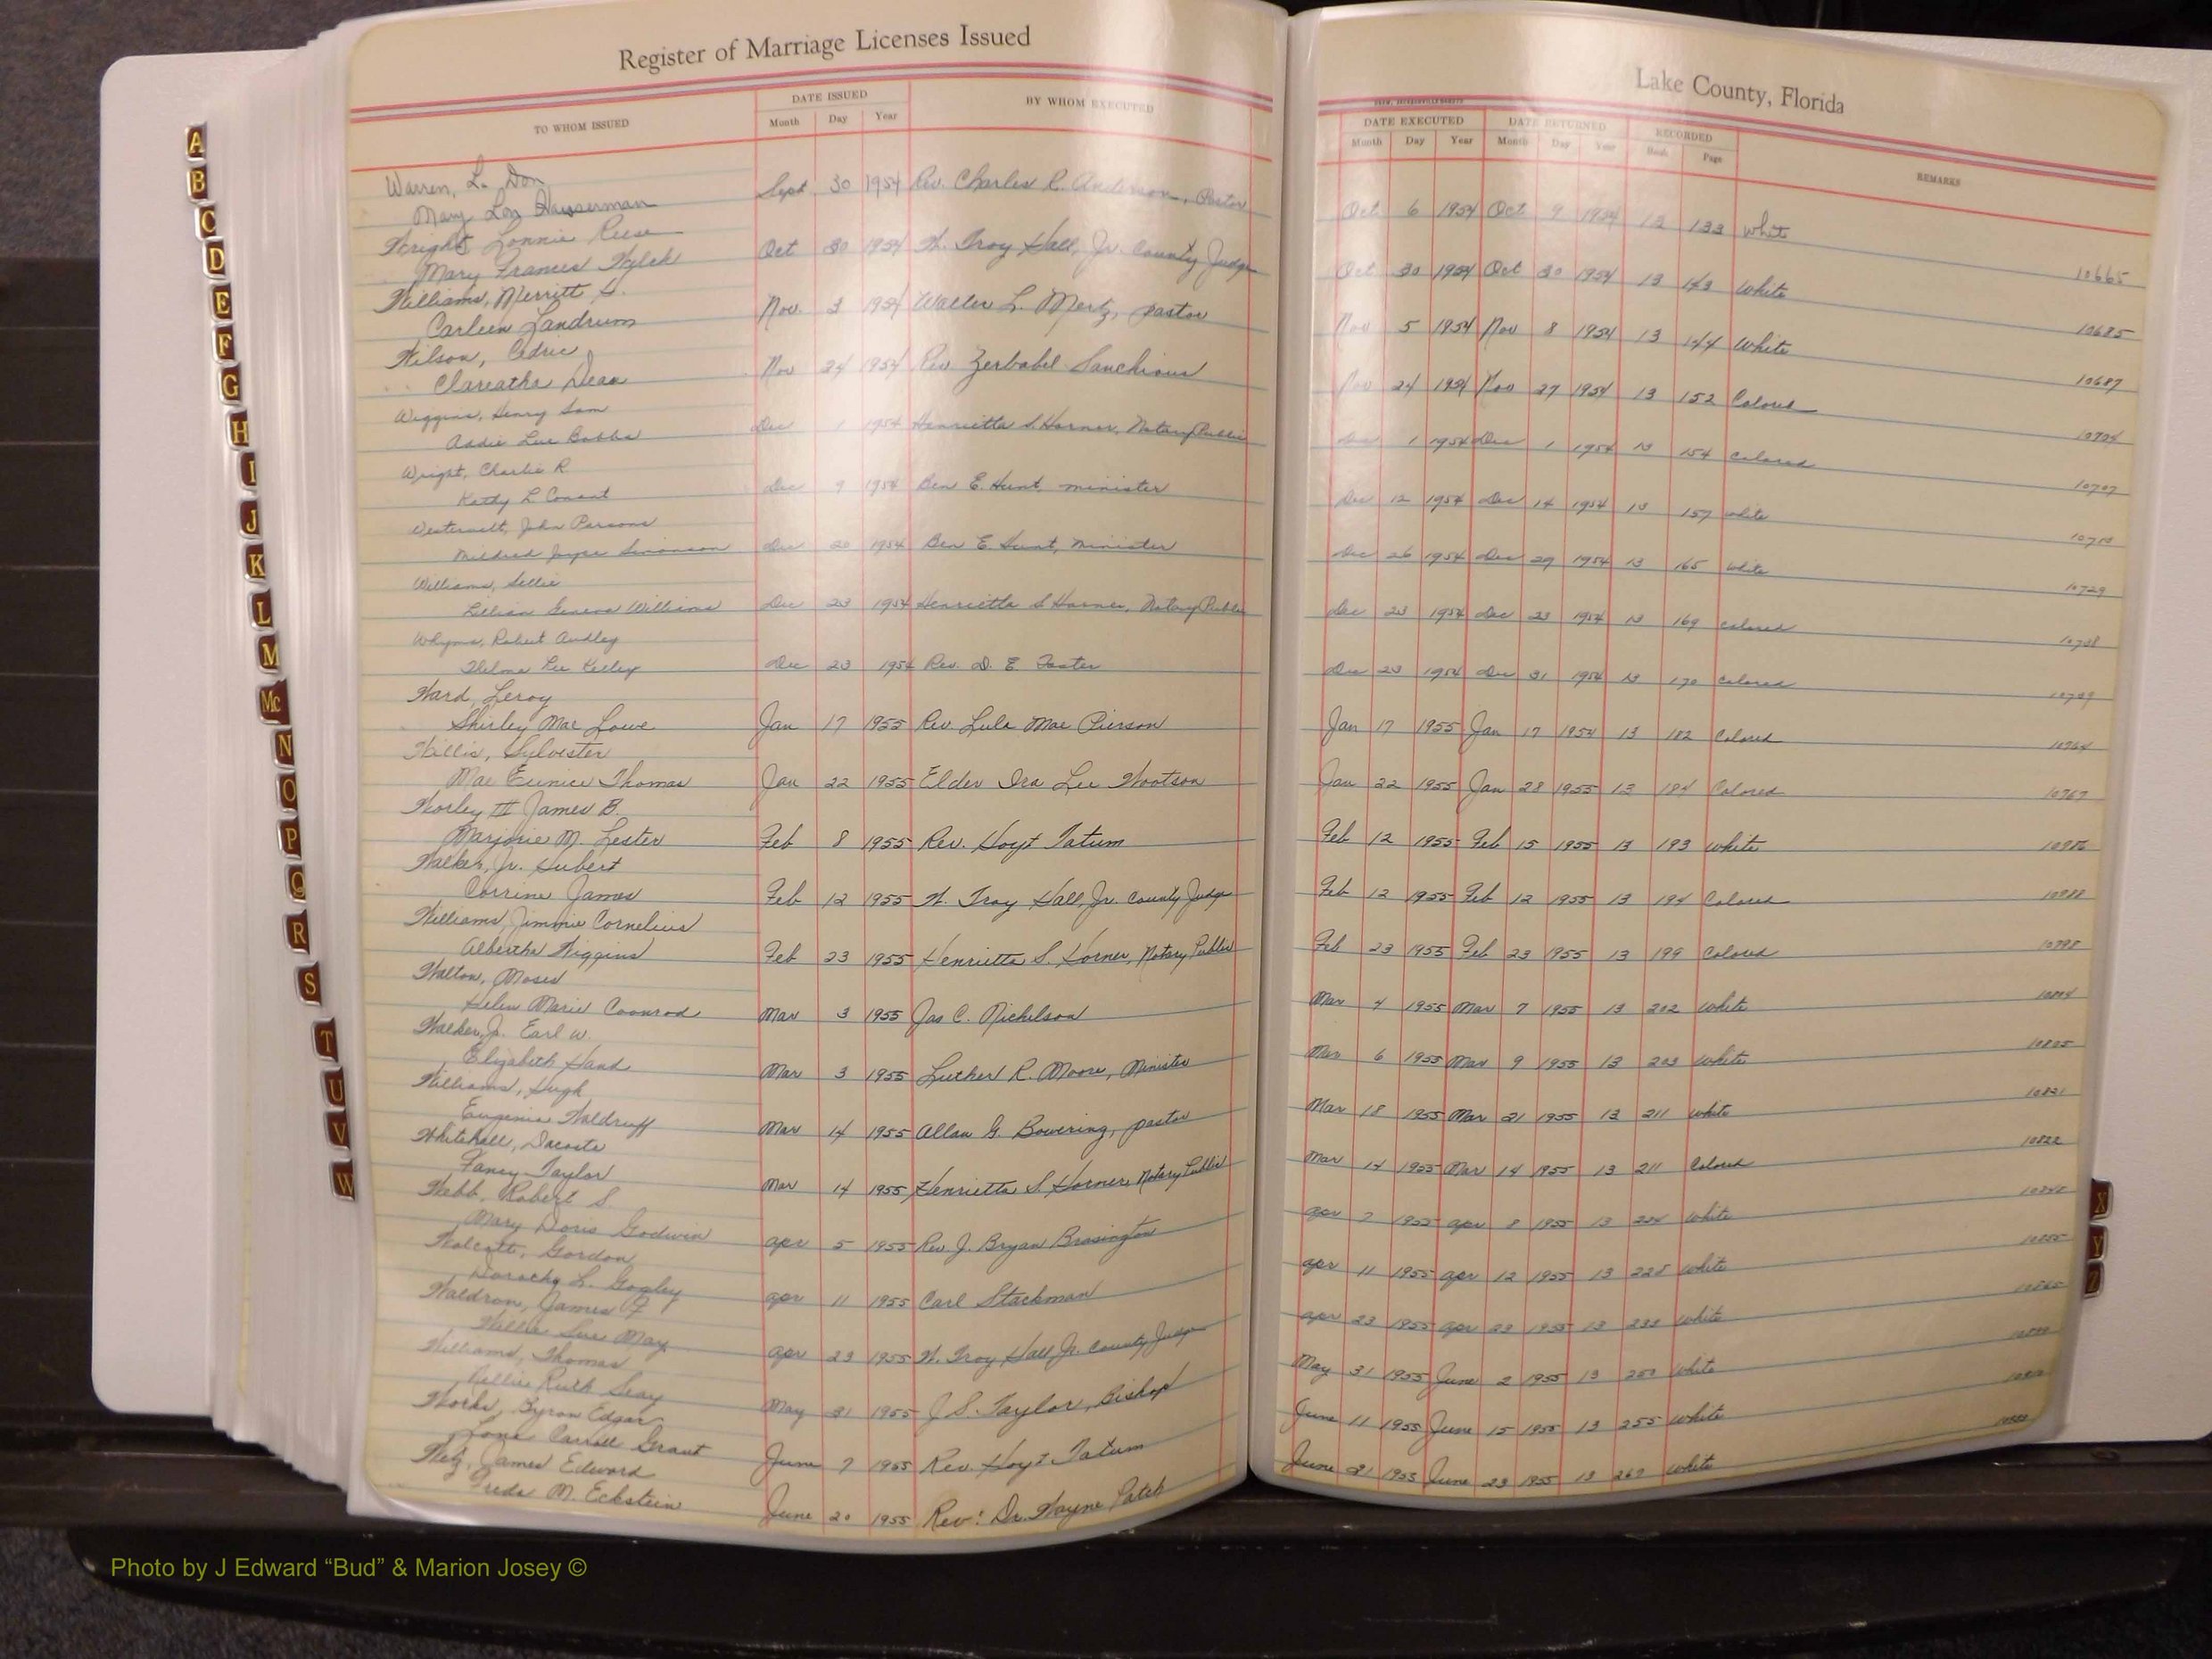 Register of Marriage Licenses Issued
TO WHOM ISSUED
DATE ISSUED
Month Day Year
BY WHOM EXECUTED
Warren, L. Don
Mary Lou Hausserman
Sept. 30 1954 Rev. Charles R. Anderson, Pastor
Wright Lonnie Reese
Mary Frances Wylck
Oct 30 1954 W. Troy Hall, Jr. County Judge
Williams, Merritt
Carleen Landrum
Nov. 3 1954 Walter L. Mertz, pastor
Wilson, Cedric
Clareatha Dean
Nov 24 1954 Rev Zerbabel Sanchious
Wiggins, Henry Sam
Addie Lue Bobbs
Dec 1 1954 Henrietta S. Horner, Notary Public
Wright, Charlie R
Kathy L Conant
Dec 9 1954 Ben E. Hunt, minister
Westervelt, John Parsons
Mildred Joyce Simonson
Dec 20 1954 Ben E. Hunt, minister
Williams,
Lillian Geneva Williams
Dec 23 1954 Henrietta S Horner, Notary Public
Whyms, Robert Audley
Thelma Lee
Dec 23 1954 Rev. D. E. Foster
Ward, Leroy
Shirley Mae Lowe
Jan 17 1955 Rev Lula Mae Pierson
Willis, Sylvester
Mae Eunice Thomas
Jan 22 1955 Elder Ira Lee Wootson
Worley III James B.
Marjorie M. Lester
Feb 8 1955 Rev. Hoyt Tatum
Walker, Jr. Hubert
Corrine James
Feb 12 1955 W. Troy Hall, Jr. County Judge
Williams, Jimmie Cornelius
Albertha Wiggins
Feb 23 1955 Henrietta S. Horner, Notary Public
Walton, Moses
Helen Marie Coonrod
Mar 3 1955 Jas C. Nichelson
Walker, Jr. Earl W.
Elizabeth Hand
Mar 3 1955 Luther R. Moore, Minister
Williams, Hugh
Eugenia Waldruff
Mar 14 1955 Allan G. Bowering, pastor
Whitehall, Dacosta
Fancy Taylor
Mar 14 1955 Henrietta S. Horner, Notary Public
Webb, Robert S
Mary Doris Godwin
Apr 5 1955 Rev J. Bryan Brasington
Wolcott, Gordon
Dorothy L. Gogley
Apr 11 1955 Carl Stackman
Waldron, James
Willie Sue May
Apr 23 1955 W. Troy Hall Jr. County Judge
Williams, Thomas
Nellie Ruth Seay
May 31 1955 J S. Taylor, Bishop
Works, Byron Edgar
Carroll Grant
June 7 1955 Rev. Hoyt Tatum
Wetz, James Edward
Freda M. Eckstein
June 20 1955 Rev. Dr. Wayne Patch
Lake County, Florida
DATE EXECUTED DATE RETURNED RECORDED
Month Day Year Month Day Year Book Page
REMARKS
Oct 6 1954 Oct 9 1954 13 133 White 10665
Oct 30 1954 Oct 30 1954 13 143 White 10685
Nov 5 1954 Nov 8 1954 13 144 White 10687
Nov 24 1954 Nov 27 1954 13 152 Colored
Dec 1 1954 Dec 1 1954 13 154 Colored 10707
Dec 12 1954 Dec 14 1954 13 157 White
Dec 26 1954 Dec 29 1954 13 165 White 10729
Dec 23 1954 Dec 23 1954 13 169 Colored 10738
Dec 23 1954 Dec 31 1954 13 170 Colored 10739
Jan 17 1955 Jan 17 1954 13 182 Colored 10764
Jan 22 1955 Jan 28 1955 13 184 Colored 10767
Feb 12 1955 Feb 15 1955 13 193 White
Feb 12 1955 Feb 12 1955 13 194 Colored
Feb 23 1955 Feb 23 1955 13 199 Colored 10798
Mar 4 1955 Mar 7 1955 13 202 White 10804
Mar 6 1955 Mar 9 1955 13 203 White 10805
Mar 18 1955 Mar 21 1955 13 211 White 10821
Mar 14 1955 Mar 14 1955 13 211 Colored 10822
Apr 7 1955 Apr 8 1955 13 White
Apr 11 1955 Apr 12 1955 13 228 White 10855
Apr 23 1955 Apr 23 1955 13 233 White
May 31 1955 June 2 1955 13 250 White
June 11 1955 June 15 1955 13 255 White
June 21 1955 June 23 1955 13 White
A
B
C
D
E
F
G
H
I
J
K
L
M
Mc
N
O
P
Q
R
S
T
U
V
W
X
Y
Z
Photo by J Edward “Bud” & Marion Josey ©